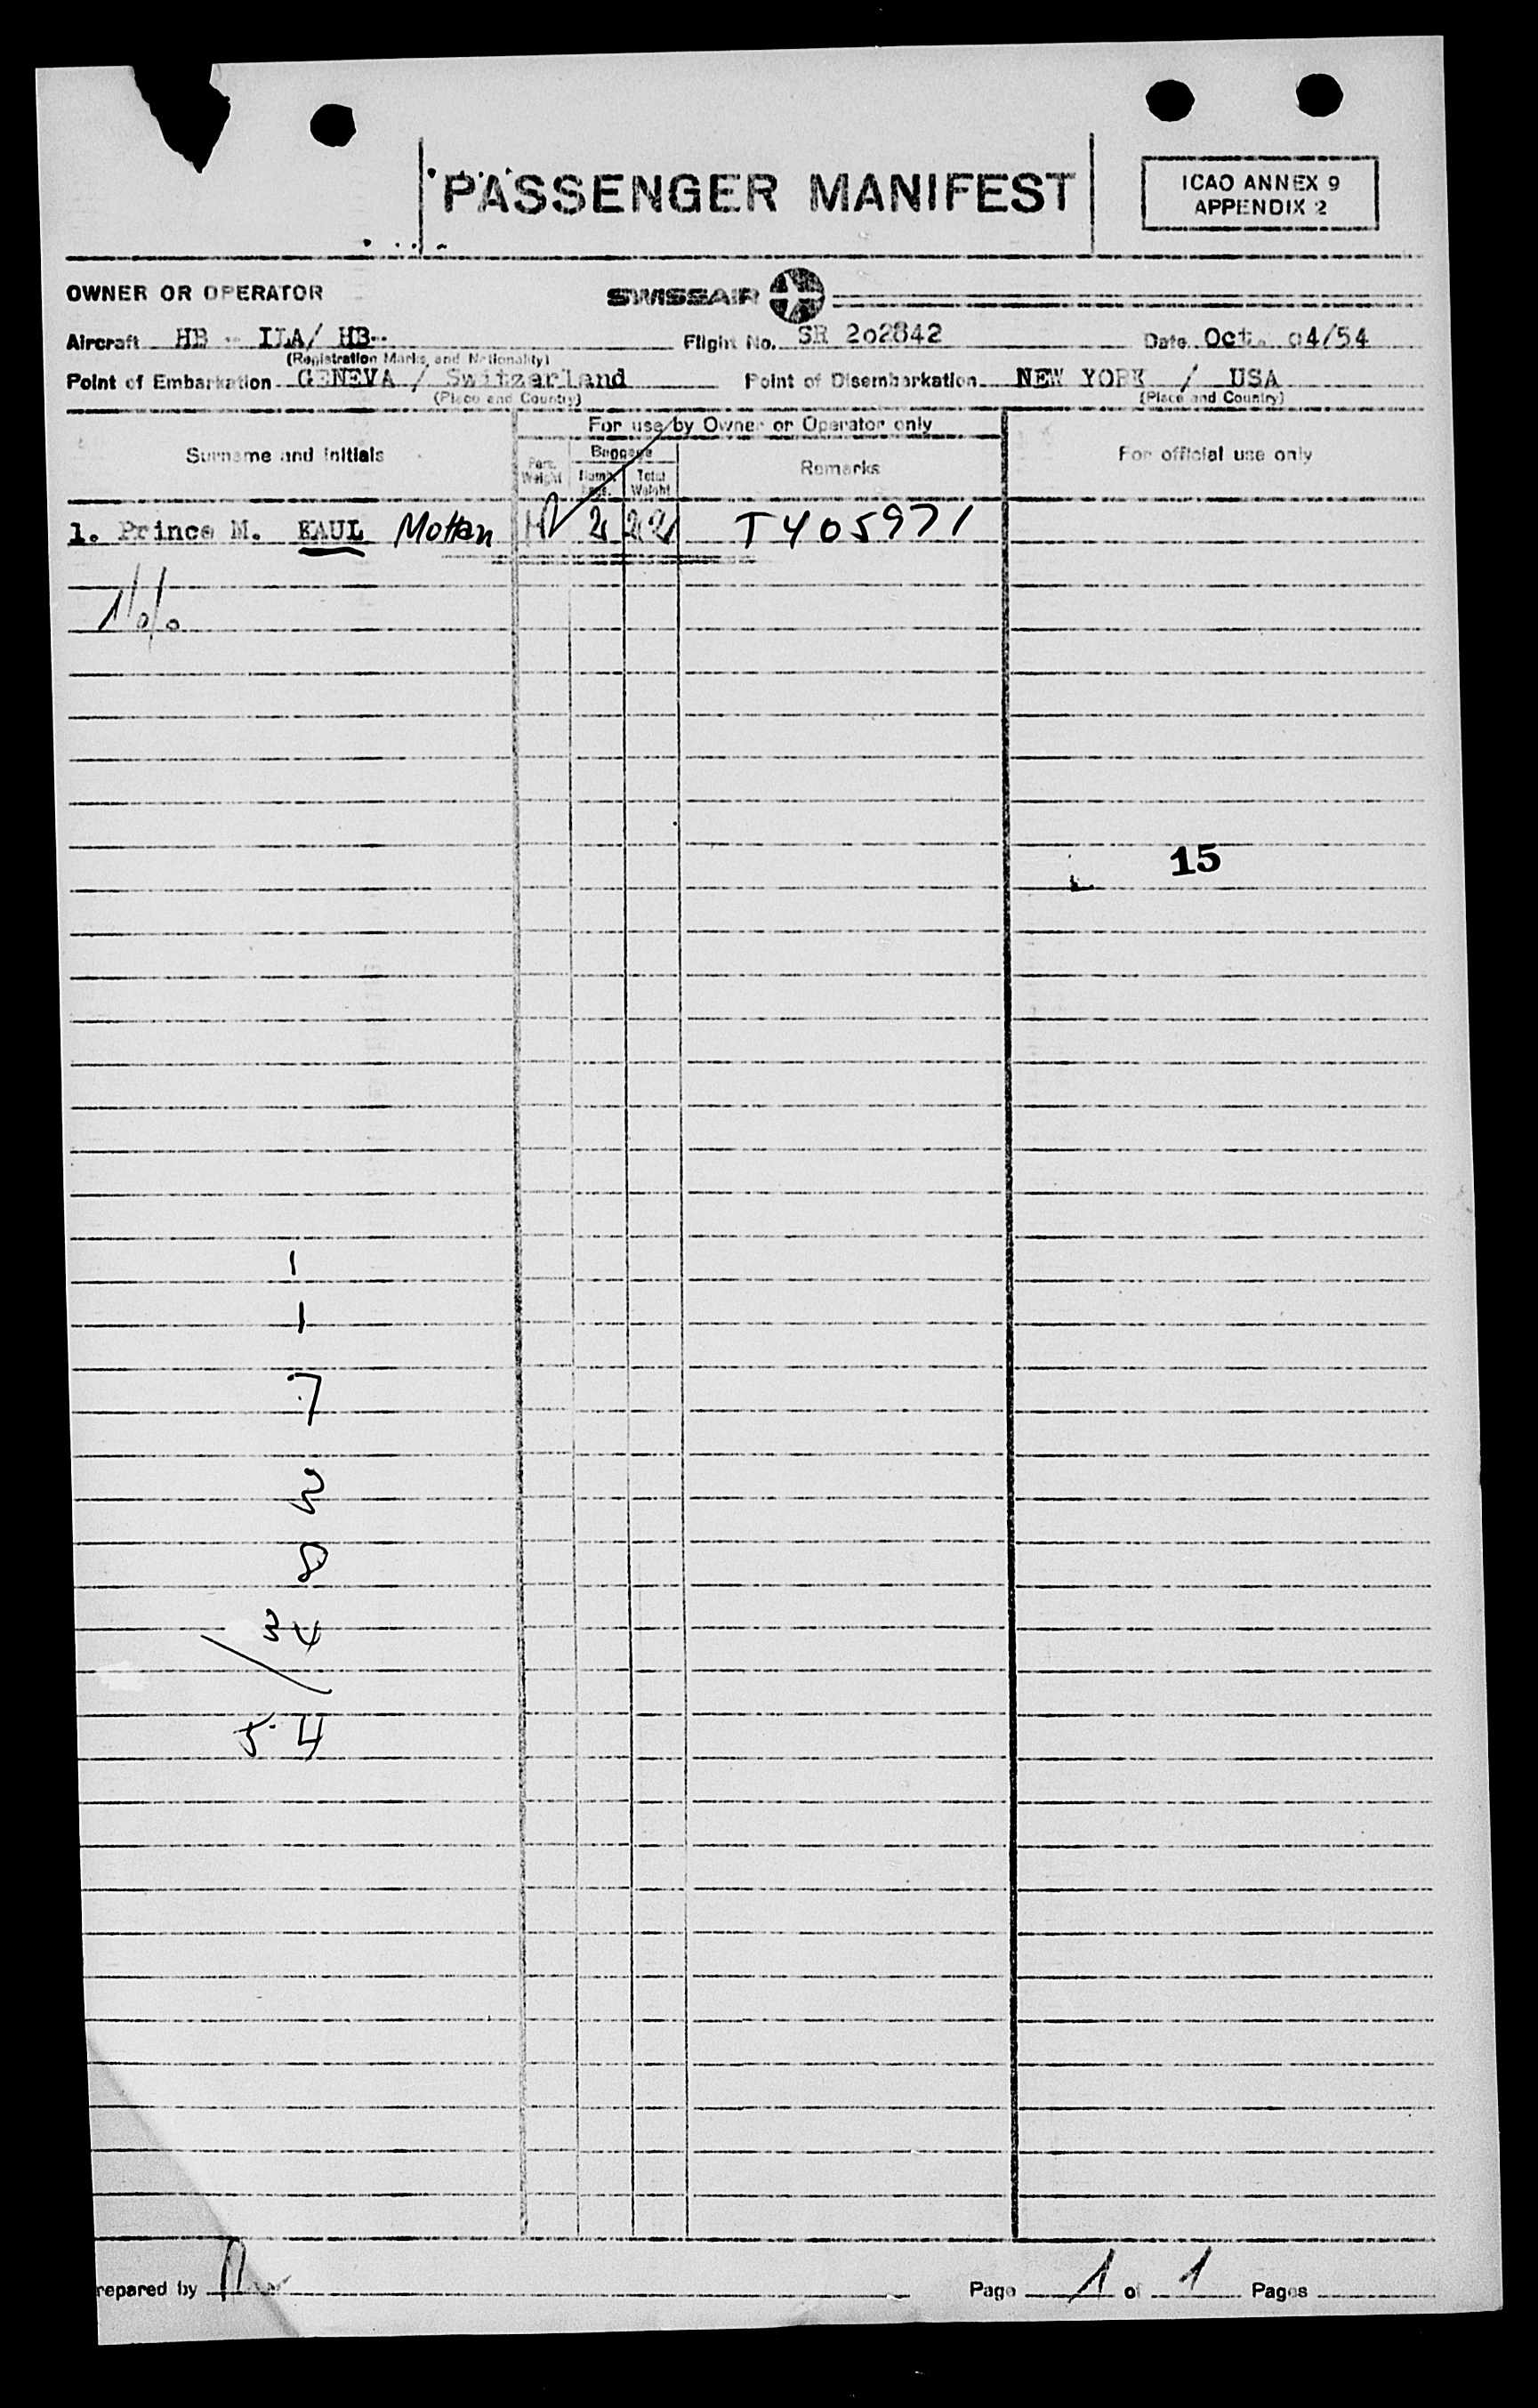 PASSENGER MANIFEST
ICAO ANNEX 9
APPENDIX 2
OWNER OR OPERATOR SWISSAIR
Aircraft HB - ILA/ HB- Flight No. SR 202842 Date Oct. 04/54
(Registration Marks and Nationality)
Point of Embarkation GENEVA / Switzerland Point of Disembarkation NEW YORK / USA
(Place and Country) (Place and Country)
For use by Owner or Operator only
Surname and Initials Pers. Weight Baggage Total Weight Remarks For official use only
1. Prince M. KAUL Mottan 2 22 T405971
1/0/0
15
1
1
7
2
8
34
54
repared by
Page 1 of 1 Pages